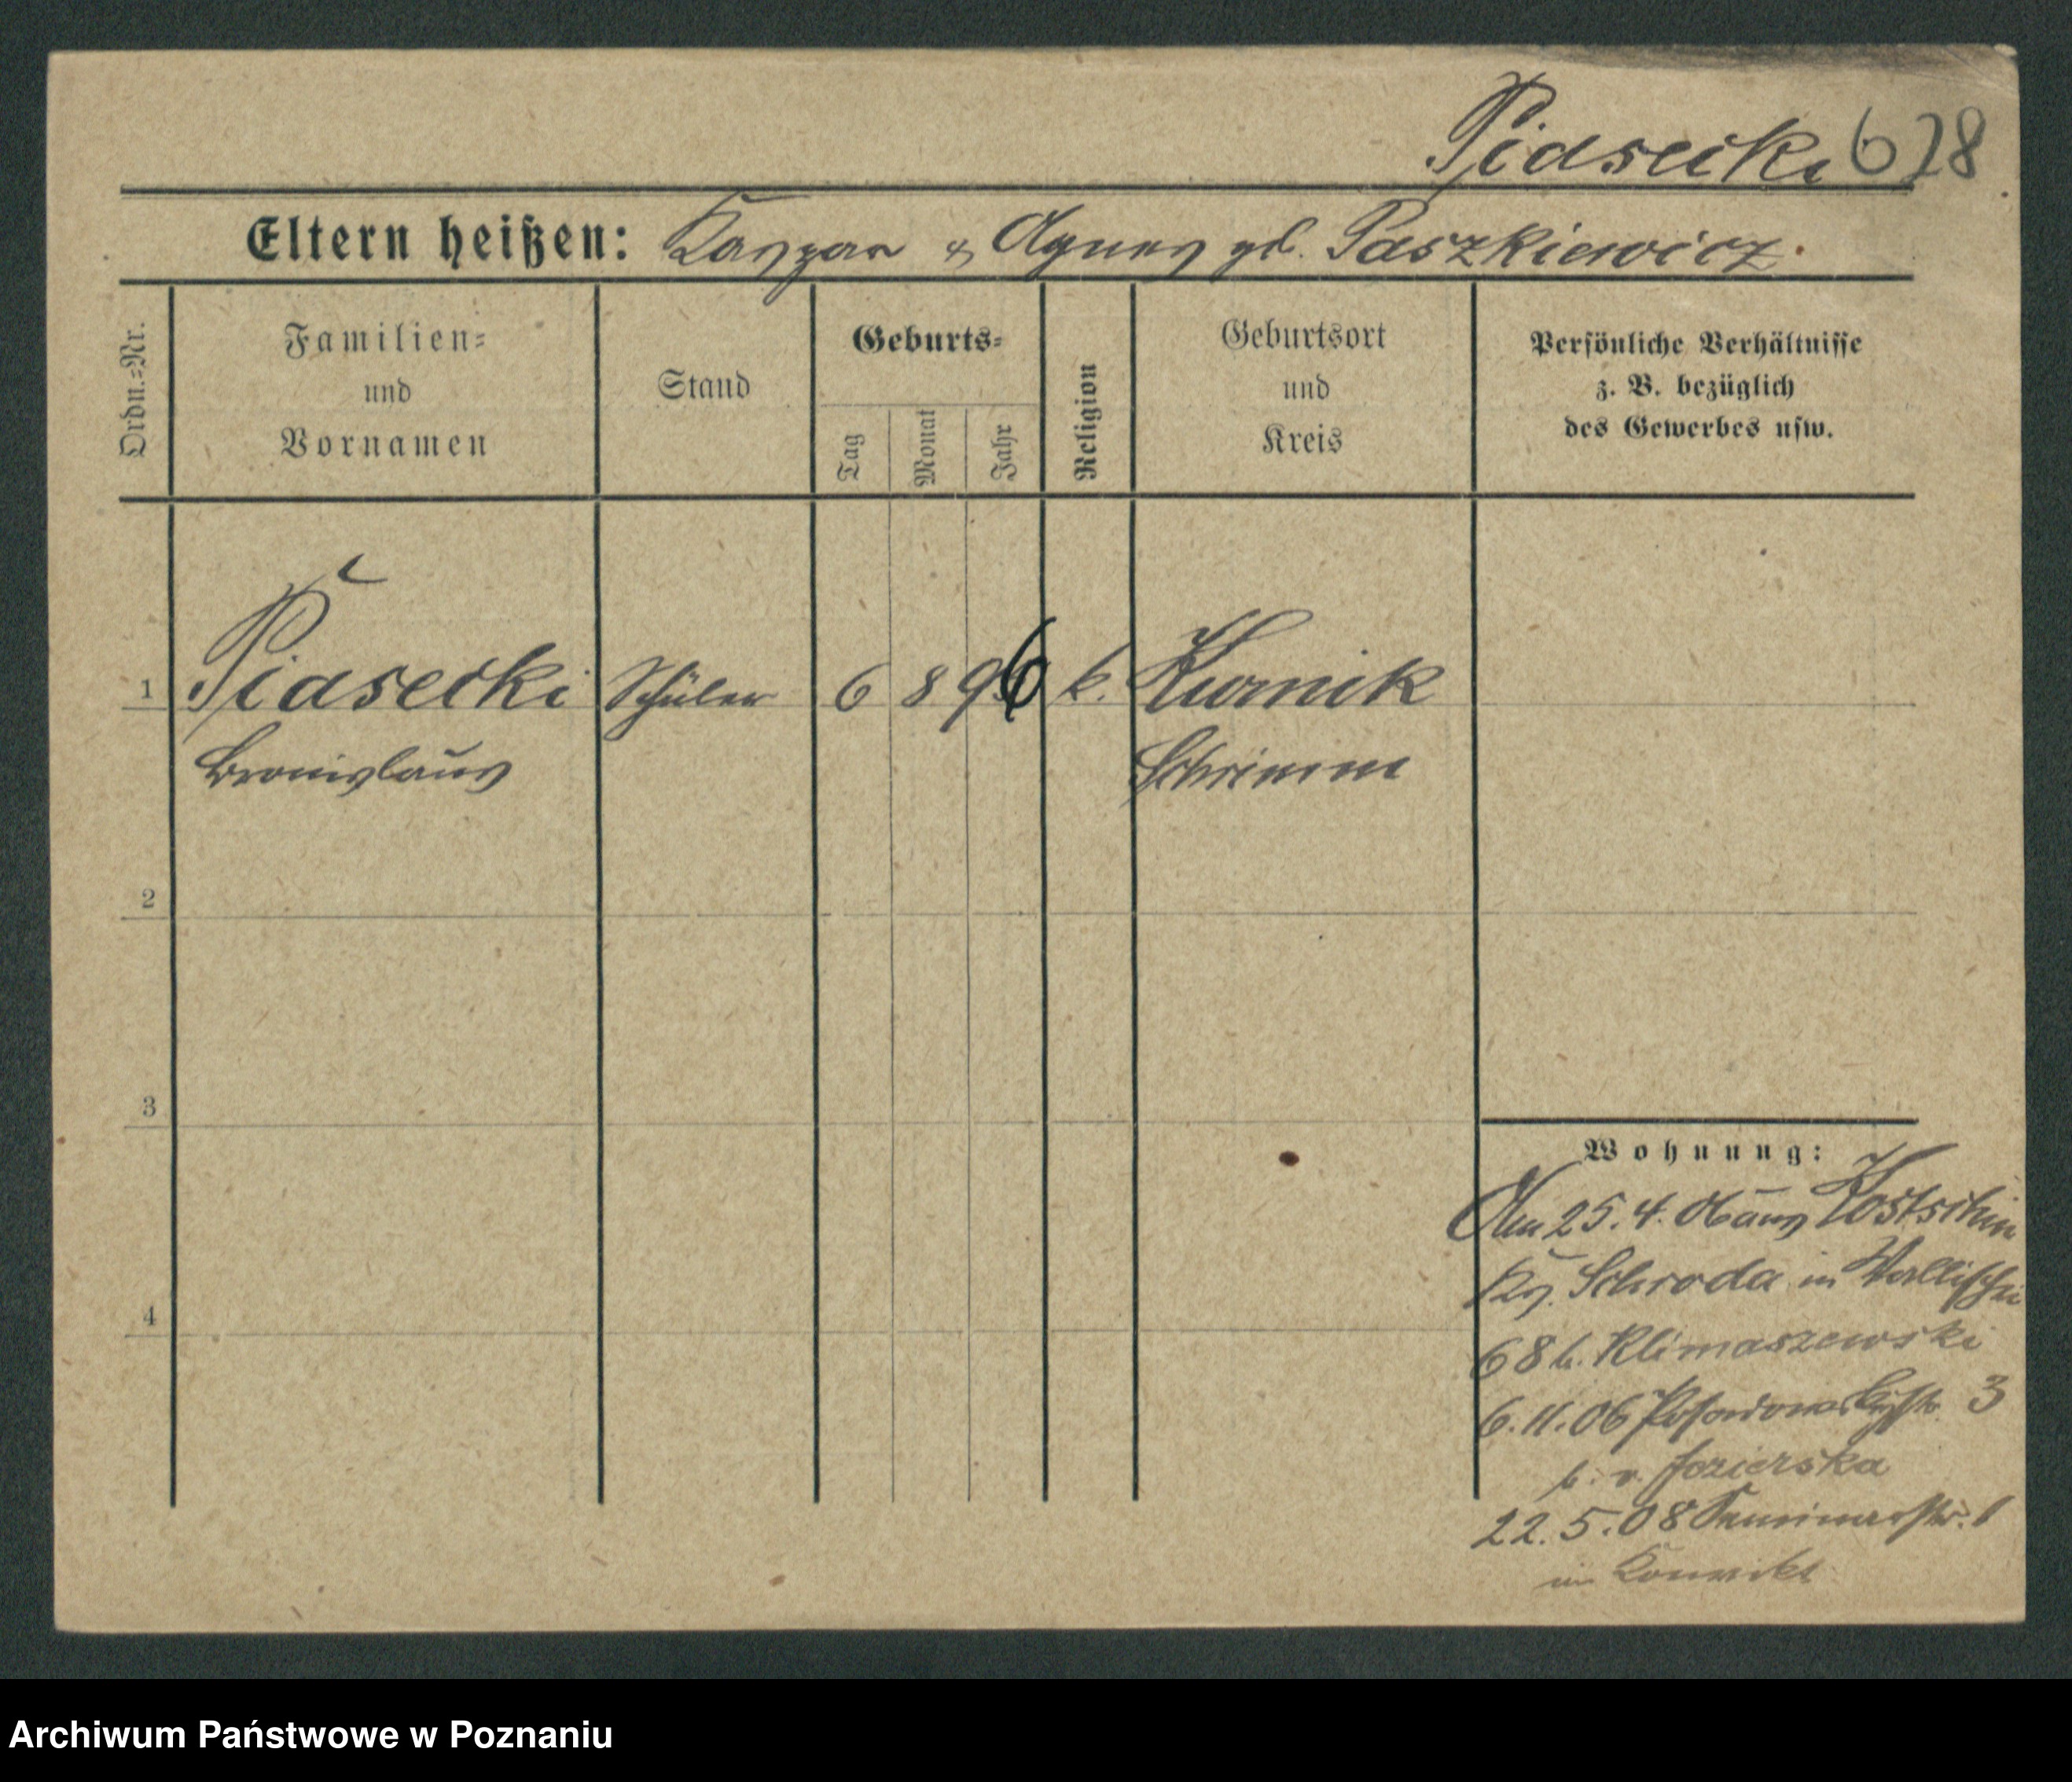 Piasecki 678
Eltern heißen: Kaspar & Agnes gb. Paszkiewicz.
Ordn.-Nr.
Familien-
und
Vornamen
Stand
Geburts-
Tag
Monat
Jahr
Religion
Geburtsort
und
Kreis
Persönliche Verhältnisse
z. B. bezüglich
des Gewerbes usw.
1 Piasecki Schüler 6 8 96 k. Kurnik
Bronislaus Schrimm
2
3
4
Wohnung:
Am 25.4.06 aus Kostschin
Krs. Schroda in Wallischei
68 b. Klimaszewski
6.11.06 Posadowskystr. 3
b. v. Jezierska
22.5.08 Seminarstr. 1
im Konvikt
Archiwum Państwowe w Poznaniu